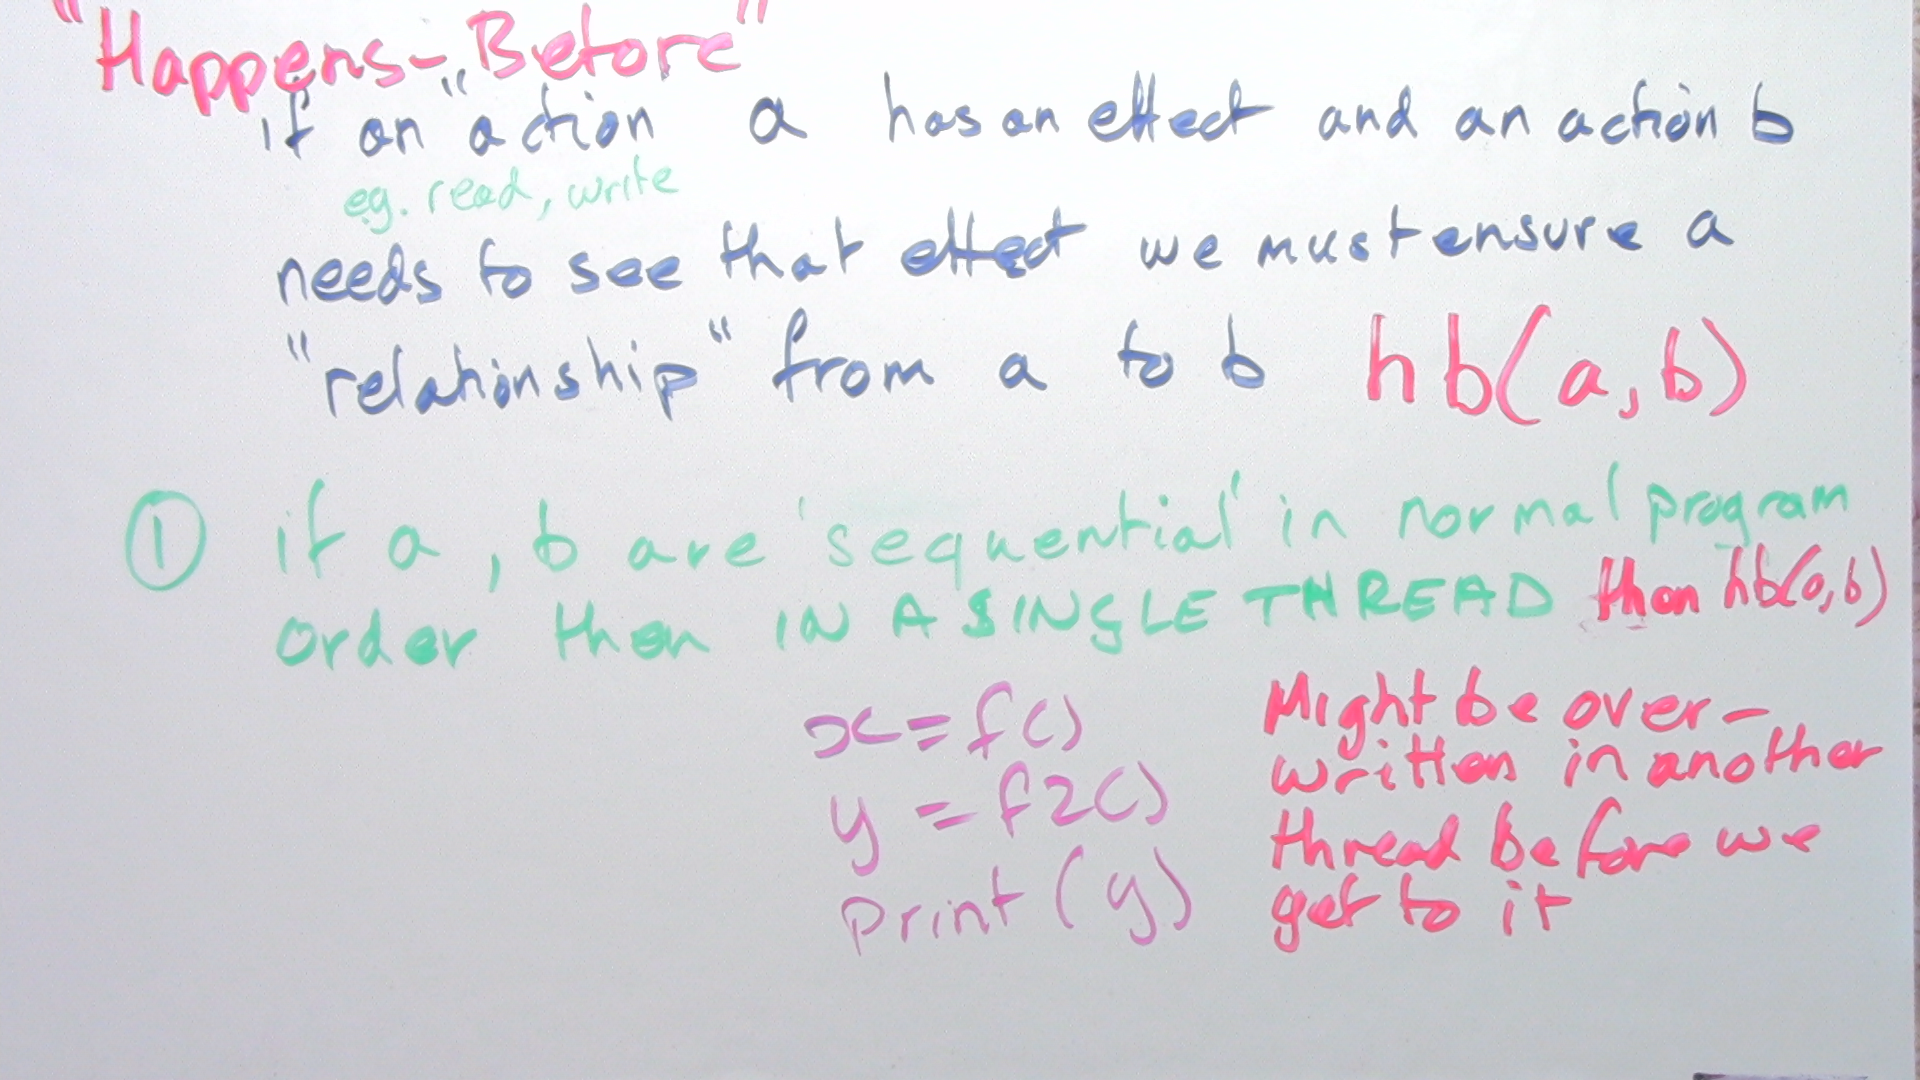 "Happens-Before"
if an "action a has an effect and an action b
eg. read, write
needs to see that effect we must ensure a
"relationship" from a to b hb(a,b)
① if a, b are 'sequential' in normal program
order then IN A SINGLE THREAD then hb(a,b)
x=f()
y=f2()
print(y)
Might be over-
written in another
thread before we
get to it